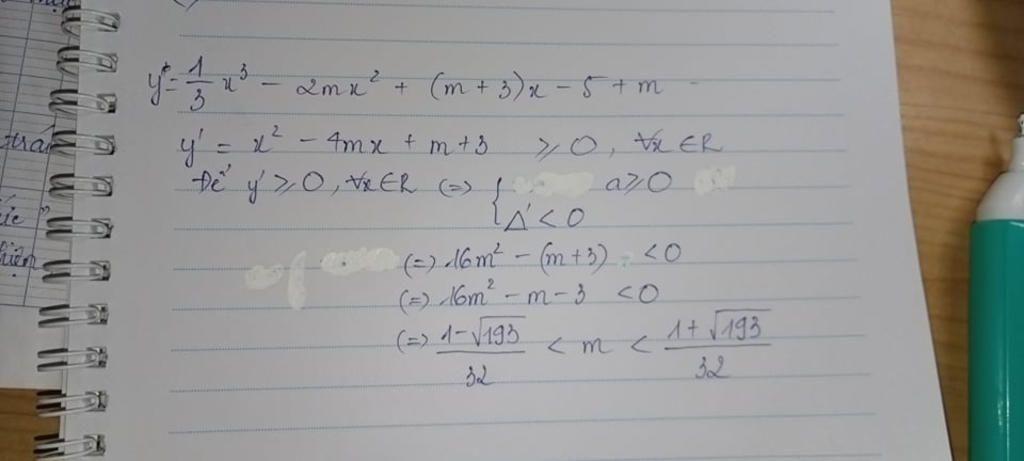 y = 1/3 x³ - 2mx² + (m+3)x - 5 + m
y' = x² - 4mx + m+3 ≥ 0, ∀x ∈ R
Để y' ≥ 0, ∀x ∈ R (=) { a ≥ 0
Δ' < 0
(=) 16m² - (m+3) < 0
(=) 16m² - m - 3 < 0
(=) (1-√193)/32 < m < (1+√193)/32